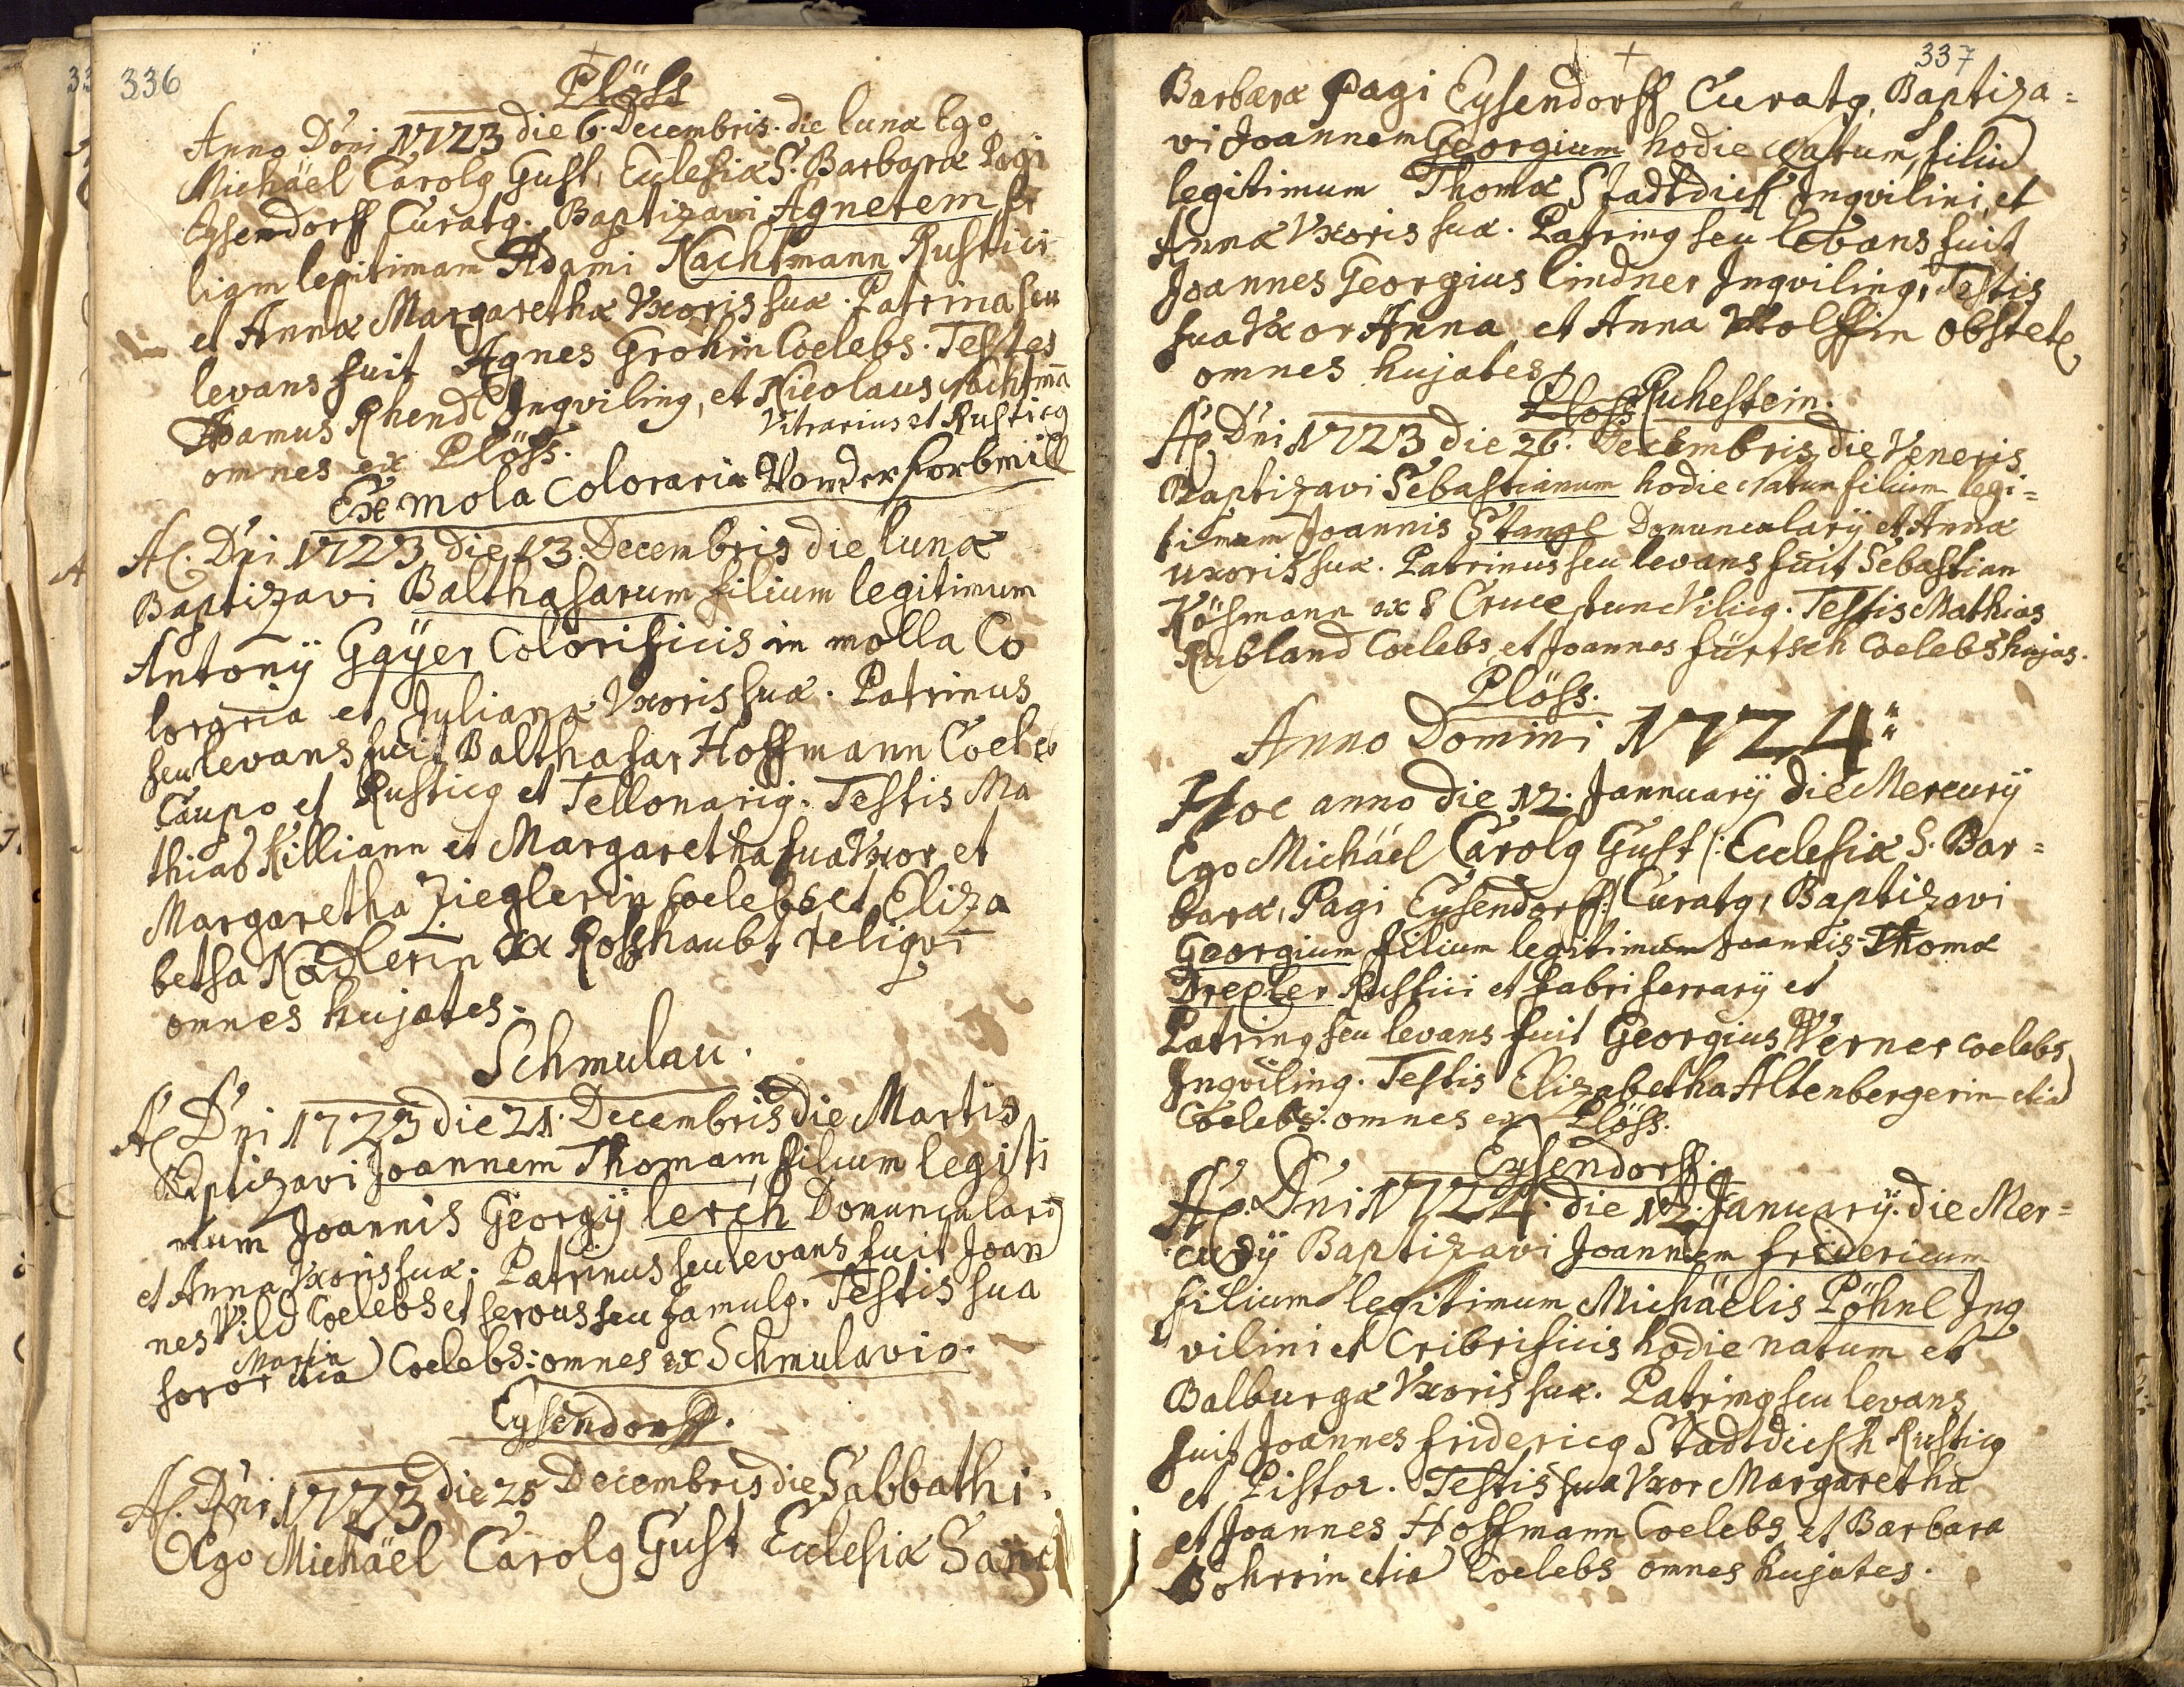 336
Plöss
Anno Dni 1723 die 6. Decembris. die lunæ Ego
Michäel Carolg Gust, Ecclesiæ S. Barbaræ Pagi
Eysendorff Curatg. Baptizavi Agnetem fi
liam legitimam Adami Nachtmann Rustici
et Annæ Margarethæ Vxoris suæ. Patrina seu
levans fuit Agnes Grohin Coelebs. Testes
Adamus Rhendl Inqviling, et Nicolaus Nachtmã
Vitrarius et Rusticg
omnes ex Plöss.
Ex mola Coloraria Von der Forbmill
Aõ. Dni 1723 die 13 Decembris die lunæ
Baptizavi Balthasarum filium legitimum
Antonÿ Gaÿer Colorificis in molla Co
loraria et Julianæ Vxoris suæ. Patrinus
seu levans fuit Balthasar Hoffmann Coeleb
Caupo et Rusticg et Tellonarig. Testis Ma
thias Killiann et Margaretha sua Vxor et
Margaretha Zieglerin Coelebs et Eliza
betha Nadlerin ex Rosshaubt, reliqvi
omnes hujates.
Schmulau.
Aõ Dni 1723 die 21. Decembris die Martis
Baptizavi Joannem Thomam, filium legiti
mum Joannis Georgÿ lerch Domuncularÿ
et Annæ Vxoris suæ. Patrinus seu levans fuit Joan
nes Vild Coelebs et servus seu famulg. Testis sua
soror Maria etiã Coelebs: omnes ex Schmulavio.
Eysendorff.
Aõ. Dni 1723 die 25 Decembris die Sabbathi.
Ego Michäel Carolg Gust Ecclesiæ Sanct
337
Barbaræ Pagi Eysendorff Curatg, Baptiza=
vi Joannem Georgium hodie Natum, filiũ
legitimum Thomæ Stadtdieff Inqvilini, et
Annæ Vxoris suæ. Patring seu levans fuit
Joannes Georgius lindner Inqviling, Testis
sua Vxor Anna et Anna Wolffin Obstet
omnes hujates.
Plöss Ruhestein.
Aõ Dni 1723 die 26. Decembris die Veneris
Baptizavi Sebastianum hodie Natum filium legi=
timum Joannis Stangl Domuncularÿ et Annæ
uxoris suæ. Patrinus seu levans fuit Sebastian
Kösmann ex S Cruce Vilicg. Testis Mathias
Rubland Coelebs et Joannes fürtsch Coelebs hujas.
Plöss.
Anno Domini 1724
Hoc anno die 12. Jannuarÿ die Mercurÿ
Ego Michäel Carolg Gust /: Ecclesiæ S. Bar=
baræ, Pagi Eysendorff :/ Curatg, Baptizavi
Georgium filium legitimum Joannis Thomæ
Drexler Rustici et fabri ferrarÿ et
Patring seu levans fuit Georgius Werner coelebs
Inqviling. Testis Elizabetha Altenbergerin etiã
Coelebs: omnes ex Plöss.
Eysendorff.
Aõ. Dni 1724. die 12. Januarÿ. die Mer=
curÿ Baptizavi Joannem fridericum
filium legitimum Michäelis Pöhnl Inq
vilini et Cribrificis hodie natum et
Balburgæ Vxoris suæ. Patring seu levans
fuit Joannes fridericg Stadtdieffh Rusticg
et Pistor. Testis sua Vxor Margaretha
et Joannes Hoffmann Coelebs et Barbara
Bohrrin etiã Coelebs omnes hujates.